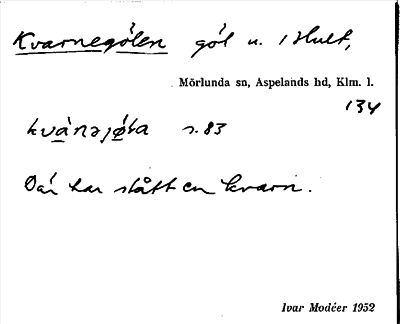 Kvarnegölen göl u. 1 Hult,
Mörlunda sn, Aspelands hd, Klm. l.
134
s. 83
Där har stått en kvarn.
Ivar Modéer 1952